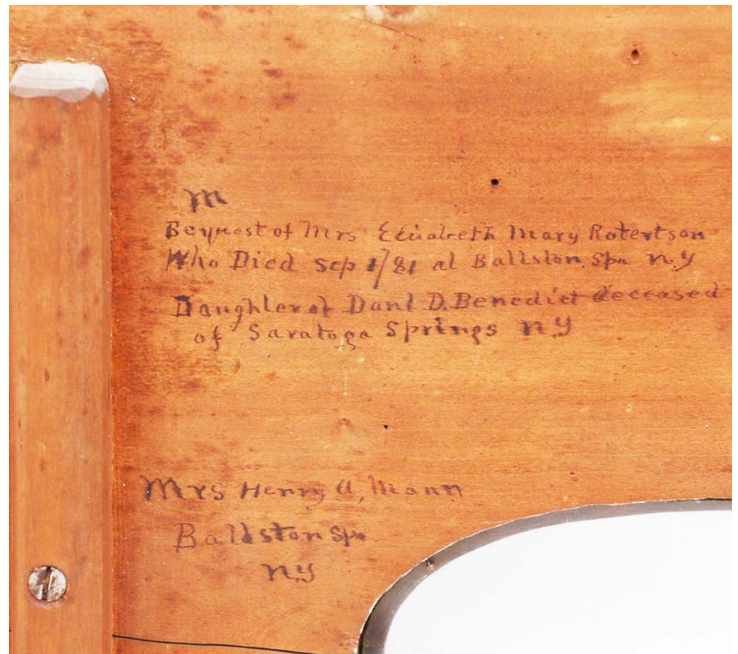 M
Bequest of Mrs Elisabeth Mary Robertson
Who Died Sep 1/81 at Ballston Spa N.Y
Daughter of Danl D. Benedict deceased
of Saratoga Springs NY
Mrs Henry A, Mann
Ballston Spa
N.Y